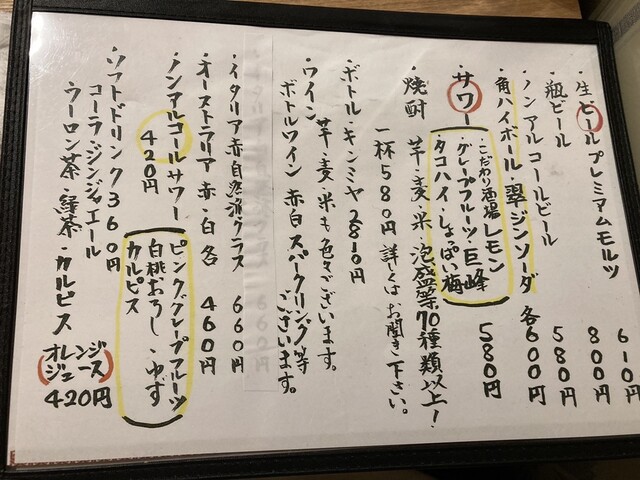 ・生ビールプレミアムモルツ 610円
・瓶ビール 800円
・ノンアルコールビール 580円
・角ハイボール・翠ジンソーダ 各600円
・サワー こだわり酒場レモン 580円
・グレープフルーツ・巨峰
・タコハイ・しょっぱい梅
・焼酎 芋・麦・米・泡盛等70種類以上!
一杯580円 詳しくはお聞き下さい。
・ボトル・キンミヤ2810円
芋・麦・米も色々ございます。
・ワイン
ボトルワイン 赤白スパークリング等
ございます。
・イタリア赤自然派グラス 660円
・オーストラリア赤・白各 460円
・ノンアルコールサワー
420円
ピンクグレープフルーツ
白桃おろし・ゆず
カルピス
・ソフトドリンク360円
コーラ・ジンジャエール
ウーロン茶・緑茶・カルピス
オレンジ
ジュース
420円